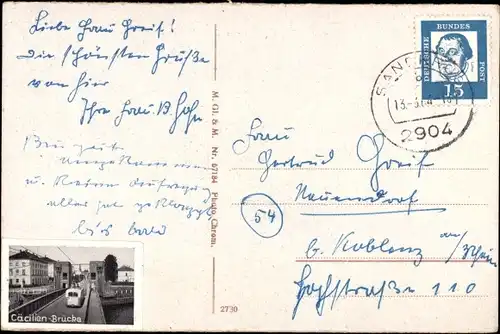 Liebe Frau Greif!
Die schönsten Grüße
von hier
Ihre Frau B. Hahn
Gut
angekommen
u. keine Aufregung
alles gut geklappt
bis bald
Cäcilien-Brücke
M. Gl. & M. Nr. 67184 Photo Chrom.
2730
DEUTSCHE BUNDES POST
15
SAND
13.-3.64.
2904
Frau
Gertrud Greif
54
Neuendorf
b. Koblenz a/Rhein
Hochstraße 110